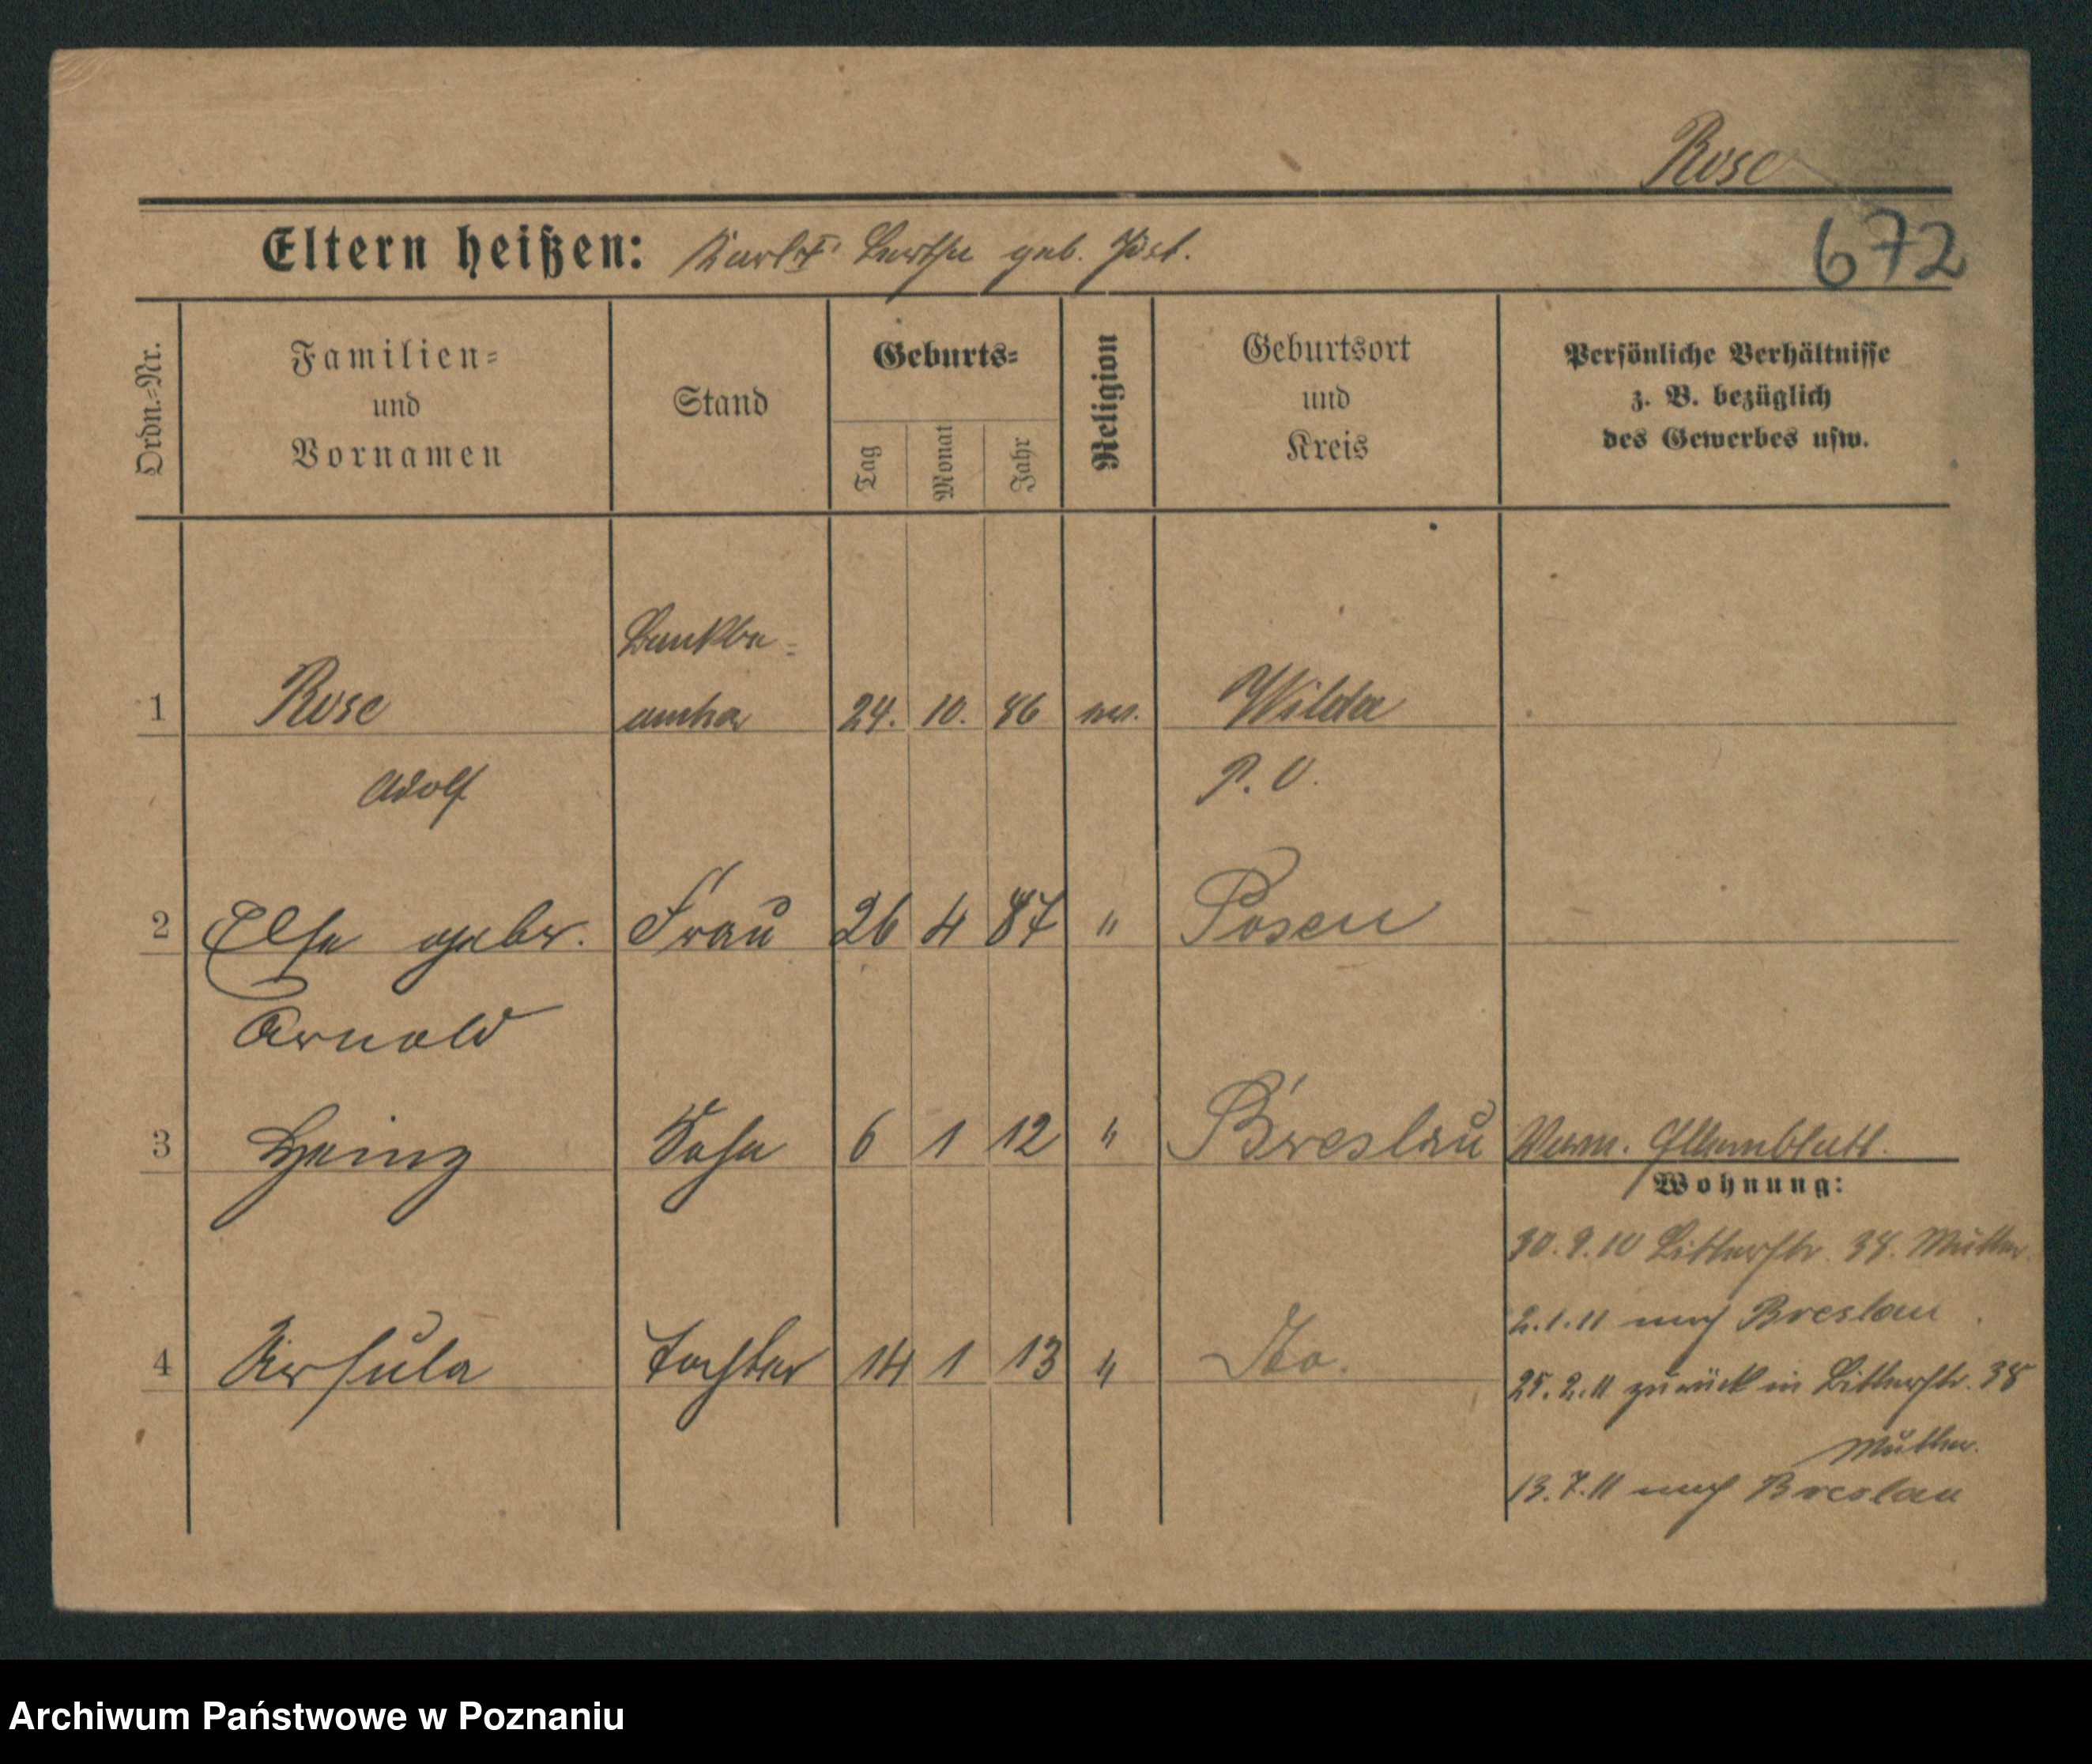 Rose
672
Eltern heißen: Karl I Berthe geb. Jost.
Ordn.-Nr.
Familien-
und
Vornamen
Stand
Geburts-
Tag
Monat
Jahr
Religion
Geburtsort
und
Kreis
Persönliche Verhältnisse
z. B. bezüglich
des Gewerbes usw.
Bankbe-
1 Rose amter 24. 10. 86 ev. Wilda
Adolf P. O.
2 Else gebr. Frau 26 4 87 " Posen
Arnold
3 Heinz Sohn 6 1 12 " Breslau Verm. Elternblatt.
Wohnung:
30. 9. 10 Bitterstr. 38. Mutter.
2. 1. 11 nach Breslau
4 Ursula Tochter 14 1 13 " Dto. 25. 2. 11 zurück in Bitterstr. 38
Mutter.
13. 7. 11 nach Breslau
Archiwum Państwowe w Poznaniu